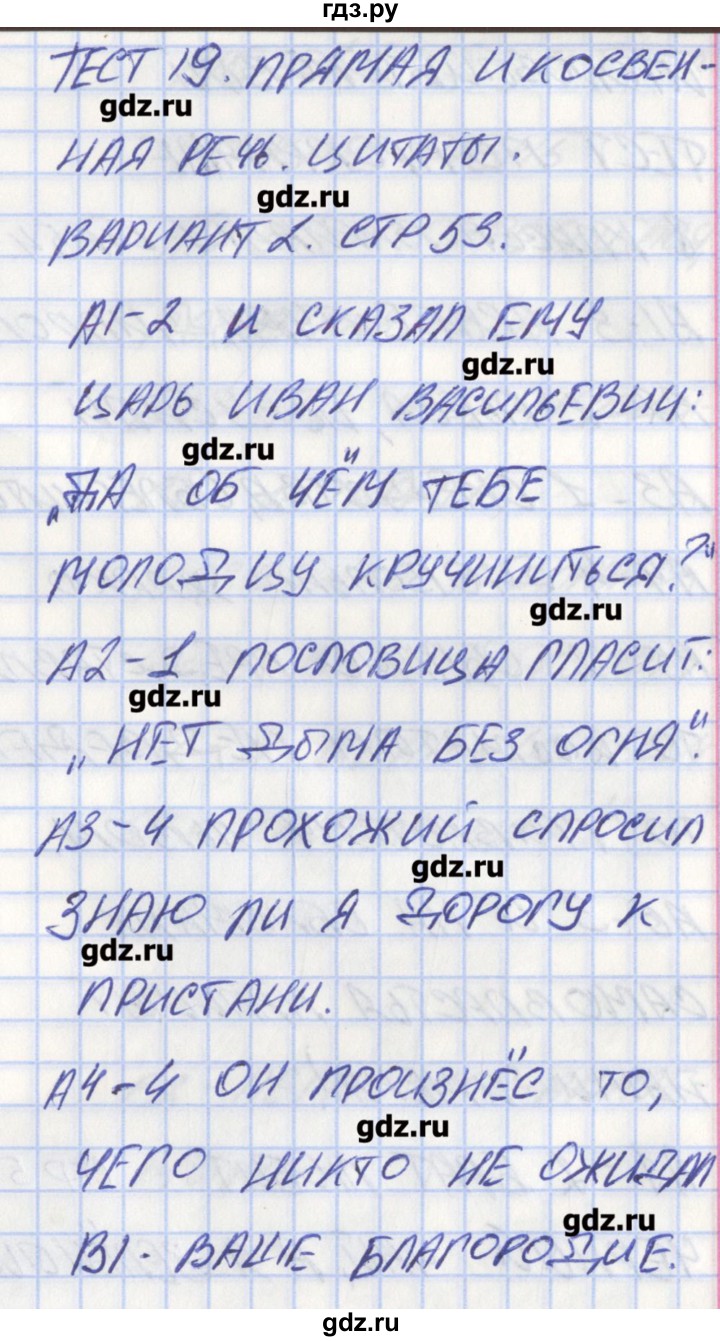 гдз.ру
ТЕСТ 19. ПРЯМАЯ И КОСВЕН-
gdz.ru
НАЯ РЕЧЬ. ЦИТАТЫ.
gdz.ru
ВАРИАНТ 2. СТР 53.
А1-2 И СКАЗАЛ ЕМУ
gdz.ru
ЦАРЬ ИВАН ВАСИЛЬЕВИЧ:
gdz.ru
„ДА ОБ ЧЁМ ТЕБЕ
МОЛОДЦУ КРУЧИНИТЬСЯ?“
gdz.ru
А2-1 ПОСЛОВИЦА ГЛАСИТ:
gdz.ru
„НЕТ ДЫМА БЕЗ ОГНЯ“.
А3-4 ПРОХОЖИЙ СПРОСИЛ
gdz.ru
ЗНАЮ ЛИ Я ДОРОГУ К
gdz.ru
ПРИСТАНИ.
А4-4 ОН ПРОИЗНЁС ТО,
gdz.ru
ЧЕГО НИКТО НЕ ОЖИДАЛ
gdz.ru
В1. ВАШЕ БЛАГОРОДИЕ.
gdz.ru